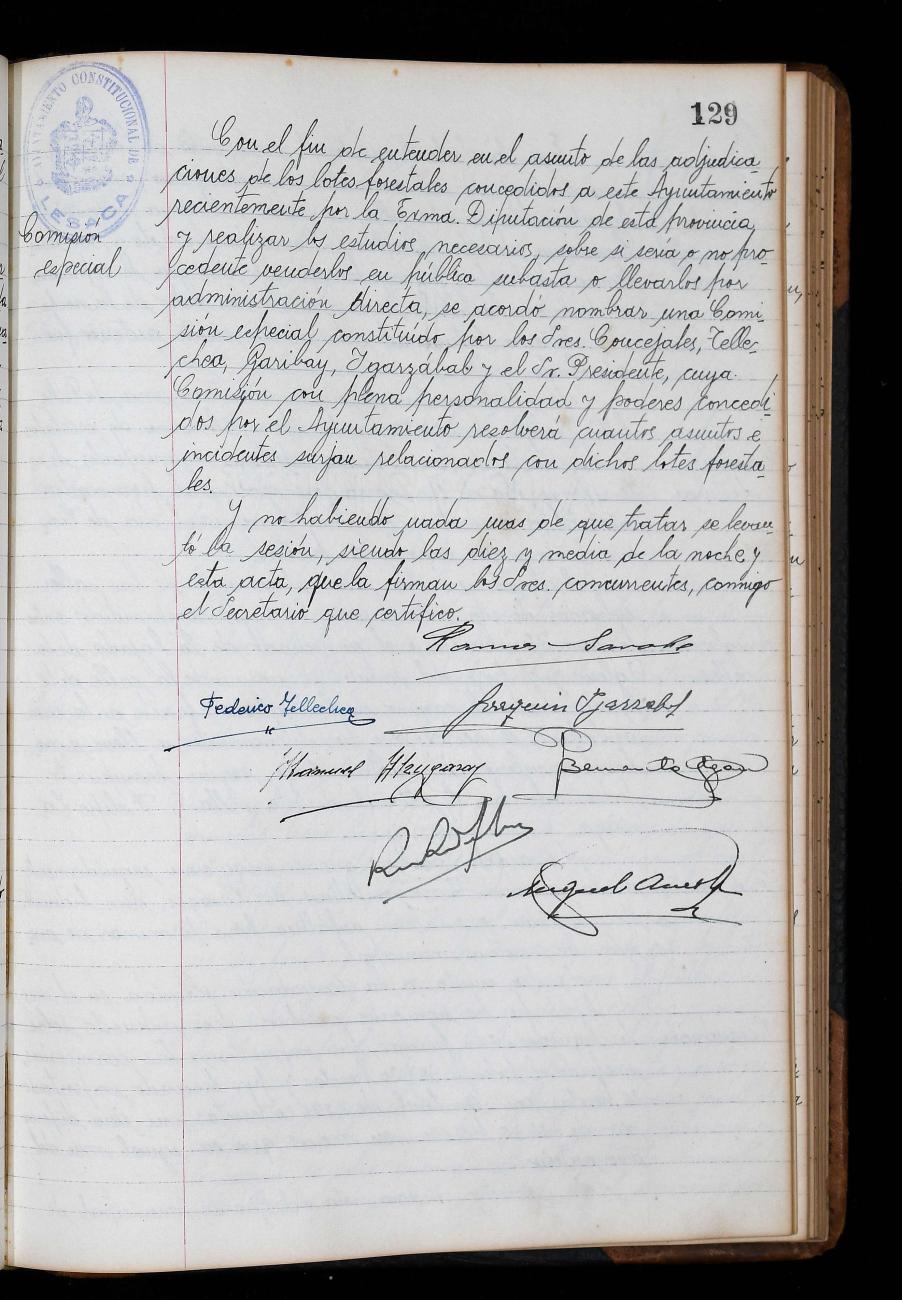 129
AYUNTAMIENTO CONSTITUCIONAL DE
LESACA
Comisión
especial
Con el fin de entender en el asunto de las adjudica
ciones de los lotes forestales concedidos a este Ayuntamiento
recientemente por la Exma. Diputación de esta provincia,
y realizar los estudios necesarios, sobre si sería o no pro-
cedente venderlos en pública subasta o llevarlos por
administración directa, se acordó nombrar una Comi-
sión especial constituído por los Sres. Concejales, Telle-
chea, Garibay, Igarzábal y el Sr. Presidente, cuya
Comisión con plena personalidad y poderes concedi-
dos por el Ayuntamiento resolverá cuantos asuntos e
incidentes surjan relacionados con dichos lotes foresta-
les.
Y no habiendo nada mas de que tratar se levan
tó la sesión, siendo las diez y media de la noche y
esta acta, que la firman los Sres. concurrentes, conmigo
el Secretario que certifico.
Federico Tellechea
Joaquin Igarzabal
Manuel
Miguel